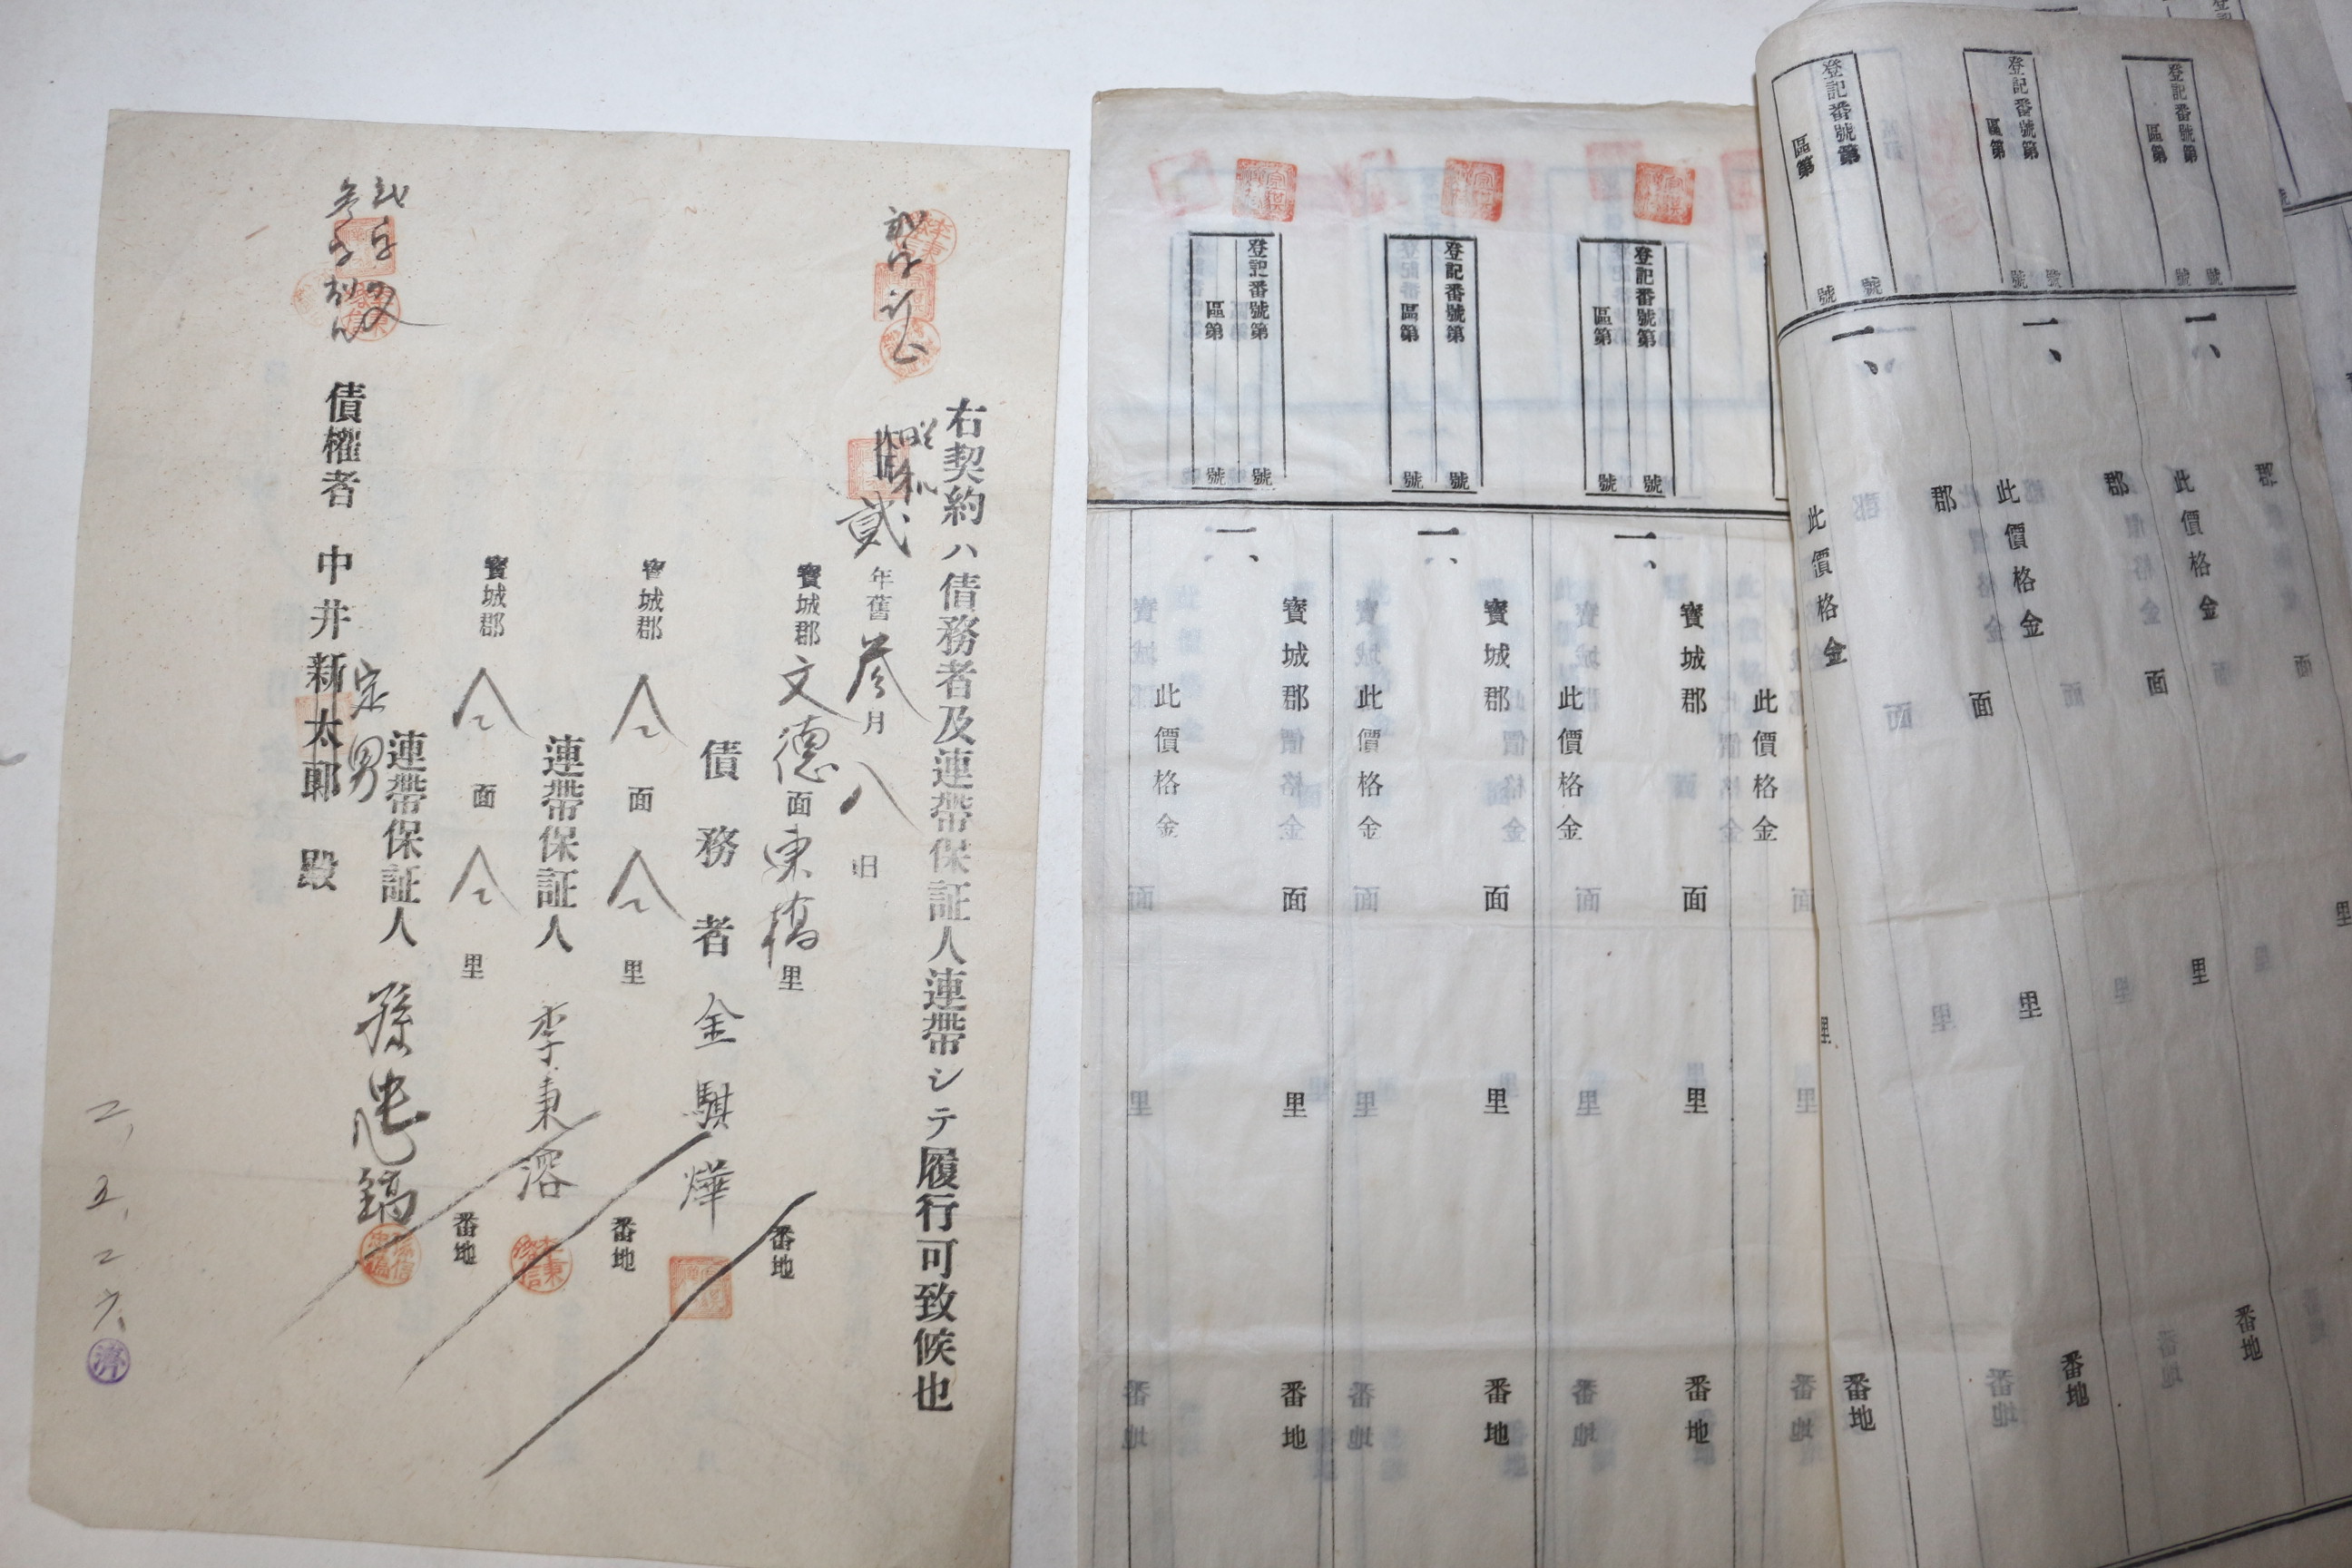 右契約ハ債務者及連帶保証人連帶シテ履行可致候也
昭和貳年舊參月八日
貳字訂正
寶城郡文德面東橋里番地
債務者 金騏燁
寶城郡仝面仝里番地
連帶保証人 李秉溶
寶城郡仝面仝里番地
連帶保証人 孫忠鎬
債權者 中井新太郎殿
定男
二、五、二六、
濟
登記番號第 號
區第 號
一、
郡 面 里 番地
此價格金
登記番號第 號
區第 號
一、
郡 面 里 番地
此價格金
登記番號第 號
區第 號
一、
郡 面 里 番地
此價格金
登記番號第 號
區第 號
一、
寶城郡 面 里 番地
此價格金
登記番號第 號
區第 號
一、
寶城郡 面 里 番地
此價格金
登記番號第 號
區第 號
一、
寶城郡 面 里 番地
此價格金
此價格金